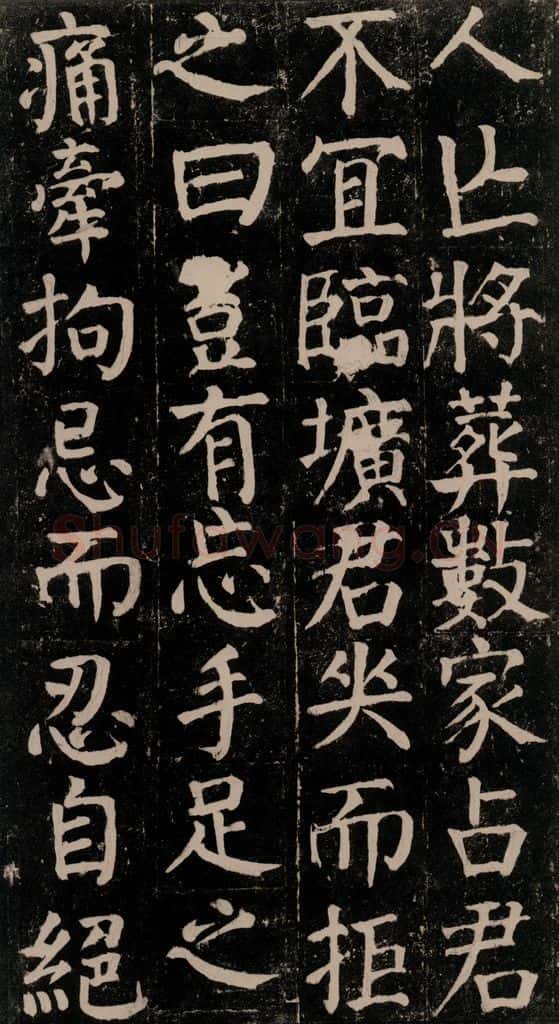 人亡將葬數家占君
不宜臨壙君哭而拒
之曰豈有忘手足之
痛牽拘忌而忍自絕
Shufawang.cn